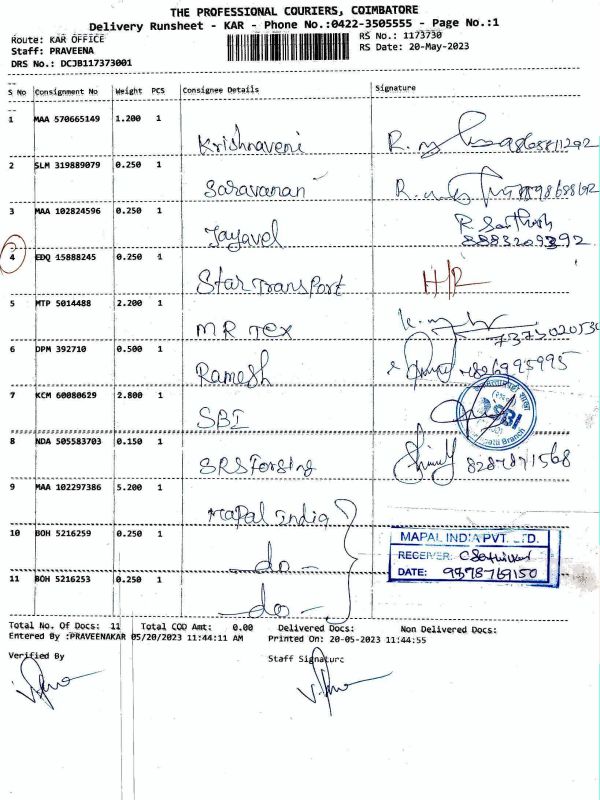 THE PROFESSIONAL COURIERS, COIMBATORE
Delivery Runsheet - KAR - Phone No.:0422-3505555 - Page No.:1
Route: KAR OFFICE RS No.: 1173730
Staff: PRAVEENA RS Date: 20-May-2023
DRS No.: DCJB117373001
S No Consignment No Weight PCS Consignee Details Signature
1 MAA 570665149 1.200 1
Krishnaveni 9865811292
2 SLM 319889079 0.250 1
Saravanan
3 MAA 102824596 0.250 1
Jayavel R. Sarthish
8883209392
4 EDQ 15888245 0.250 1
Star Transport H/R
5 MTP 5014488 2.200 1
MR Tex
6 DPM 392710 0.500 1
Ramesh
7 KCM 60080629 2.800 1
SBI SBI
Branch
8 NDA 505583703 0.150 1
SRS Forging
9 MAA 102297386 5.200 1
Mapal India
10 BOH 5216259 0.250 1
- do - MAPAL INDIA PVT. LTD.
RECEIVER:
11 BOH 5216253 0.250 1
- do - DATE: 9898769150
Total No. Of Docs: 11 Total COD Amt: 0.00 Delivered Docs: Non Delivered Docs:
Entered By :PRAVEENAKAR 05/20/2023 11:44:11 AM Printed On: 20-05-2023 11:44:55
Verified By Staff Signature